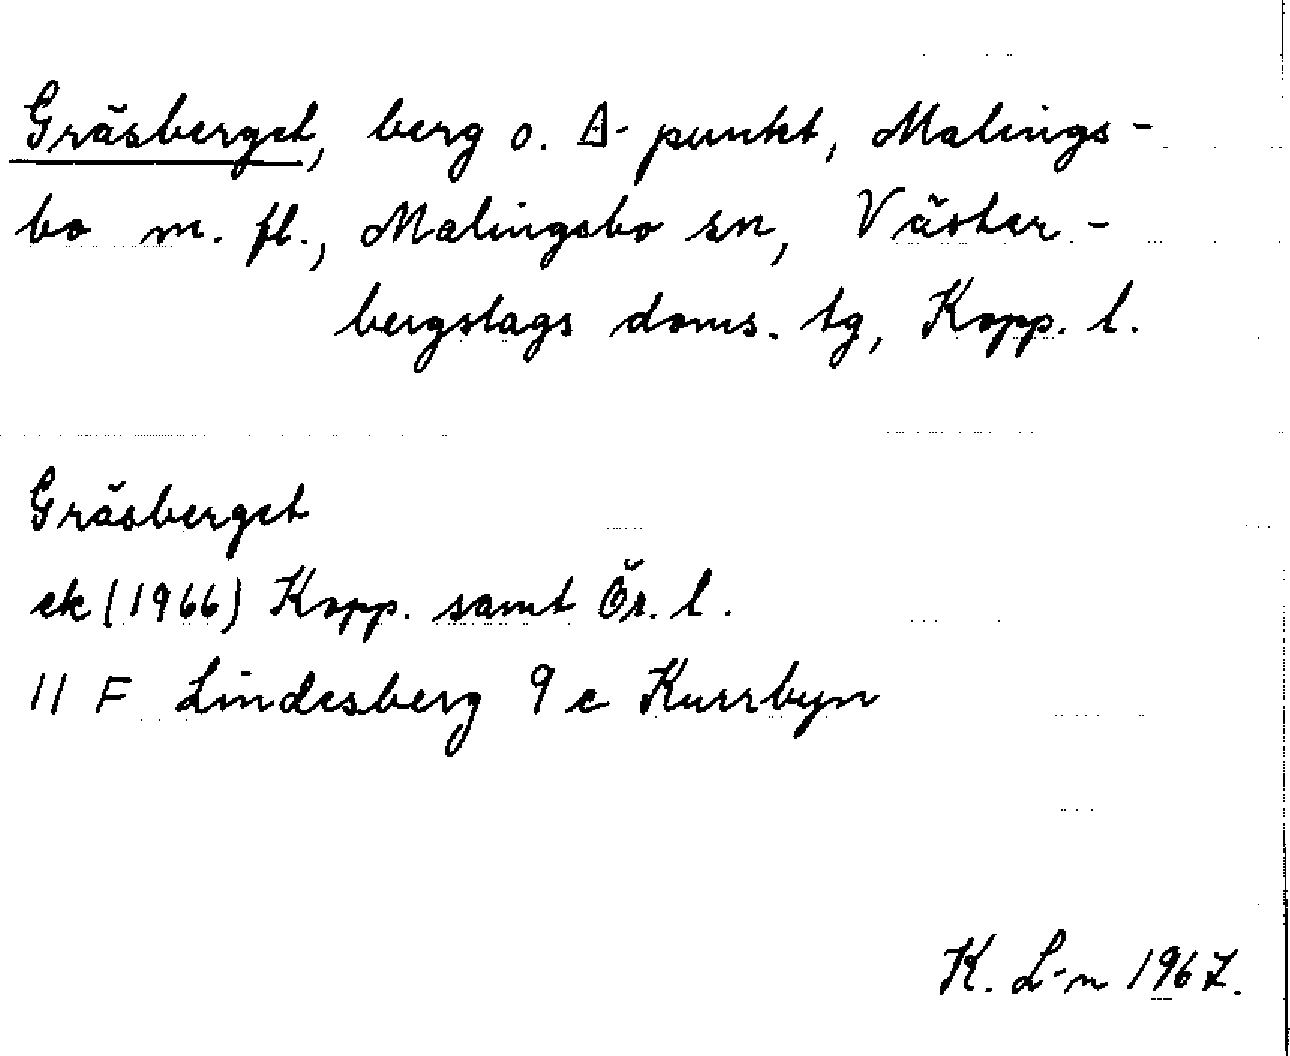 Gräsberget, berg o. Δ-punkt, Malings-
bo m. fl., Malingsbo sn, Väster-
bergslags doms. tg, Kopp. l.
Gräsberget
ek (1966) Kopp. samt Ör. l.
11 F Lindesberg 9 c Kurrbyn
K. L-n 1967.